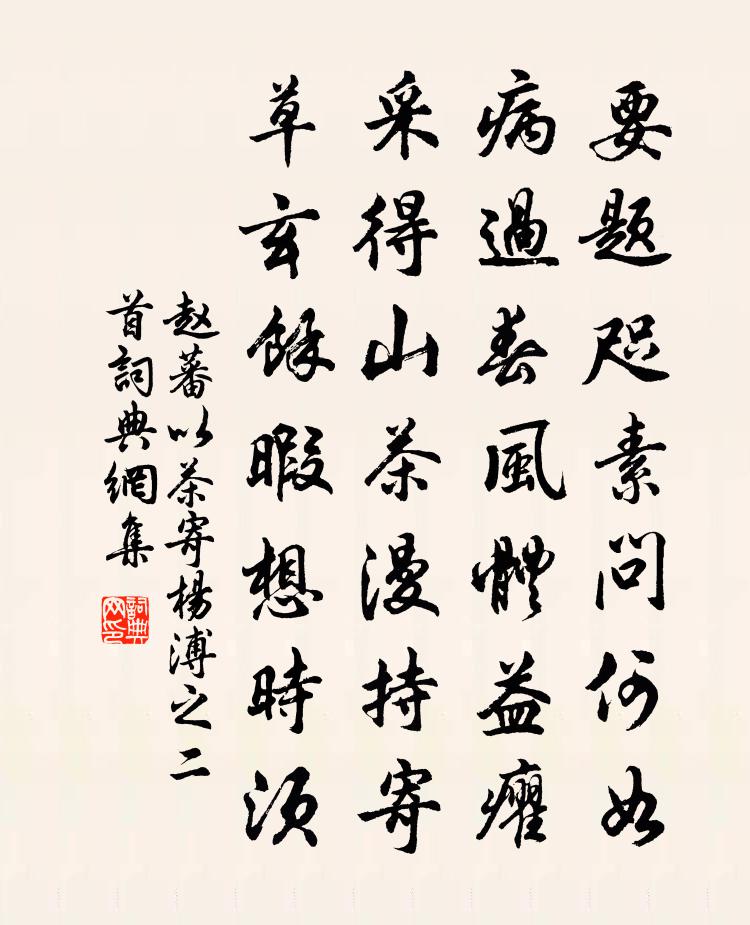 要題咫素問何如
病過春風體益癯
采得山茶漫持寄
草玄餘暇想時須
赵蕃以茶寄楊溥之二
首詞典網集
詞典
网印